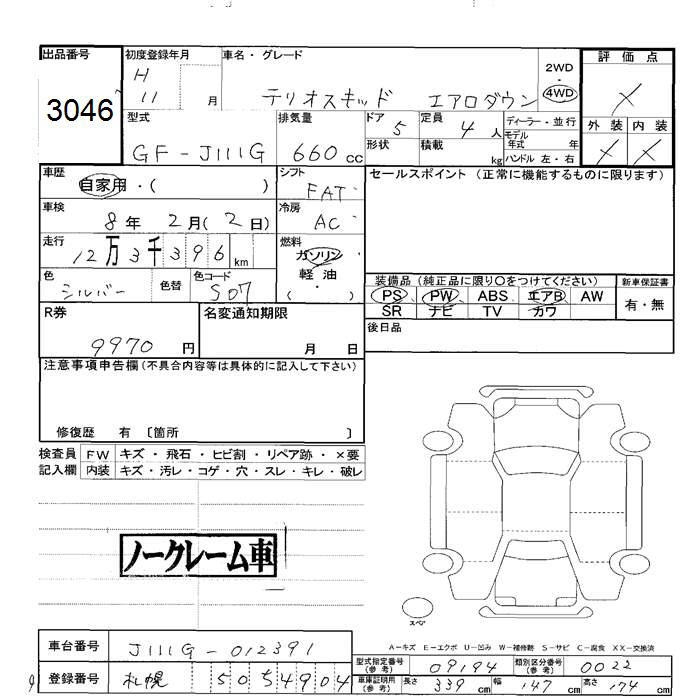 出品番号
3046
初度登録年月
H 11 月
車名・グレード
テリオスキッド エアロダウン
2WD
・
4WD
評価点
X
外装 内装
X X
型式
GF-J111G
排気量
660 CC
ドア
5
定員
4 人
形状
積載
kg
ディーラー・並行
モデル
年式 年
ハンドル 左・右
車歴
自家用・( )
シフト
FAT
セールスポイント(正常に機能するものに限ります)
車検
8年 2月(2日)
冷房
AC
走行
12万3千396 km
燃料
ガソリン
軽油
( )
色
シルバー
色替
色コード
S07
装備品(純正品に限り〇をつけてください)
PS PW ABS エアB AW
SR ナビ TV カワ
新車保証書
有・無
後日品
R券
9970 円
名変通知期限
月 日
注意事項申告欄(不具合内容等は具体的に記入して下さい)
修復歴 有 〔箇所 〕
検査員
記入欄
FW キズ・飛石・ヒビ割・リペア跡・×要
内装 キズ・汚レ・コゲ・穴・スレ・キレ・破レ
ノークレーム車
スペア
A-キズ E-エクボ U-凹み W-補修跡 S-サビ C-腐食 XX-交換済
車台番号
J111G-012391
登録番号
札幌 50 54904
型式指定番号
(参考)
09194
類別区分番号
(参考)
0022
車庫証明用
(参考)
長さ 339 cm 幅 147 cm 高さ 174 cm